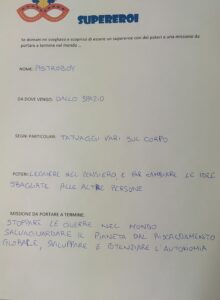 SUPEREROI
Se domani mi svegliassi e scoprissi di essere un supereroe con dei poteri e una missione da
portare a termine nel mondo ..
NOME: ASTROBOY
DA DOVE VENGO: DALLO SPAZIO
SEGNI PARTICOLARI: TATUAGGI VARI SUL CORPO
POTERI: LEGGERE NEL PENSIERO E FAR CAMBIARE LE IDEE
SBAGLIATE ALLE ALTRE PERSONE
MISSIONE DA PORTARE A TERMINE:
STOPPARE LE GUERRE NEL MONDO
SALVAGUARDARE IL PIANETA DAL RISCALDAMENTO
GLOBALE, SVILUPPARE E POTENZIARE L'AUTONOMIA